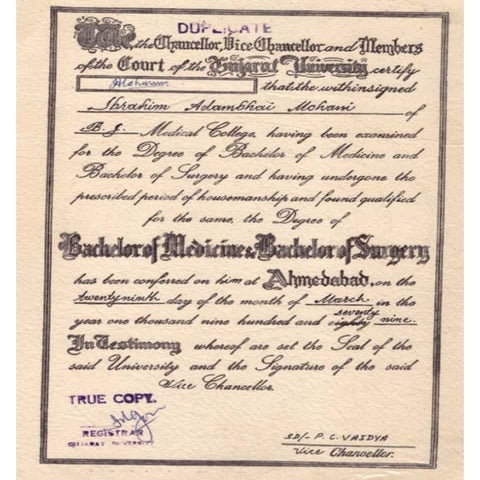 DUPLICATE
We the Chancellor, Vice Chancellor and Members
of the Court of the Gujarat University certify
that the withinsigned
Ibrahim Adambhai Mohani of
B.J. Medical College, having been examined
for the Degree of Bachelor of Medicine and
Bachelor of Surgery and having undergone the
prescribed period of housemanship and found qualified
for the same, the Degree of
Bachelor of Medicine & Bachelor of Surgery
has been conferred on him at Ahmedabad, on the
twentyninth day of the month of March in the
seventy
year one thousand nine hundred and eighty nine.
In Testimony whereof are set the Seal of the
said University and the Signature of the said
Vice Chancellor.
TRUE COPY.
REGISTRAR
GUJARAT UNIVERSITY
SD/- P. C. VAIDYA
Vice Chancellor.